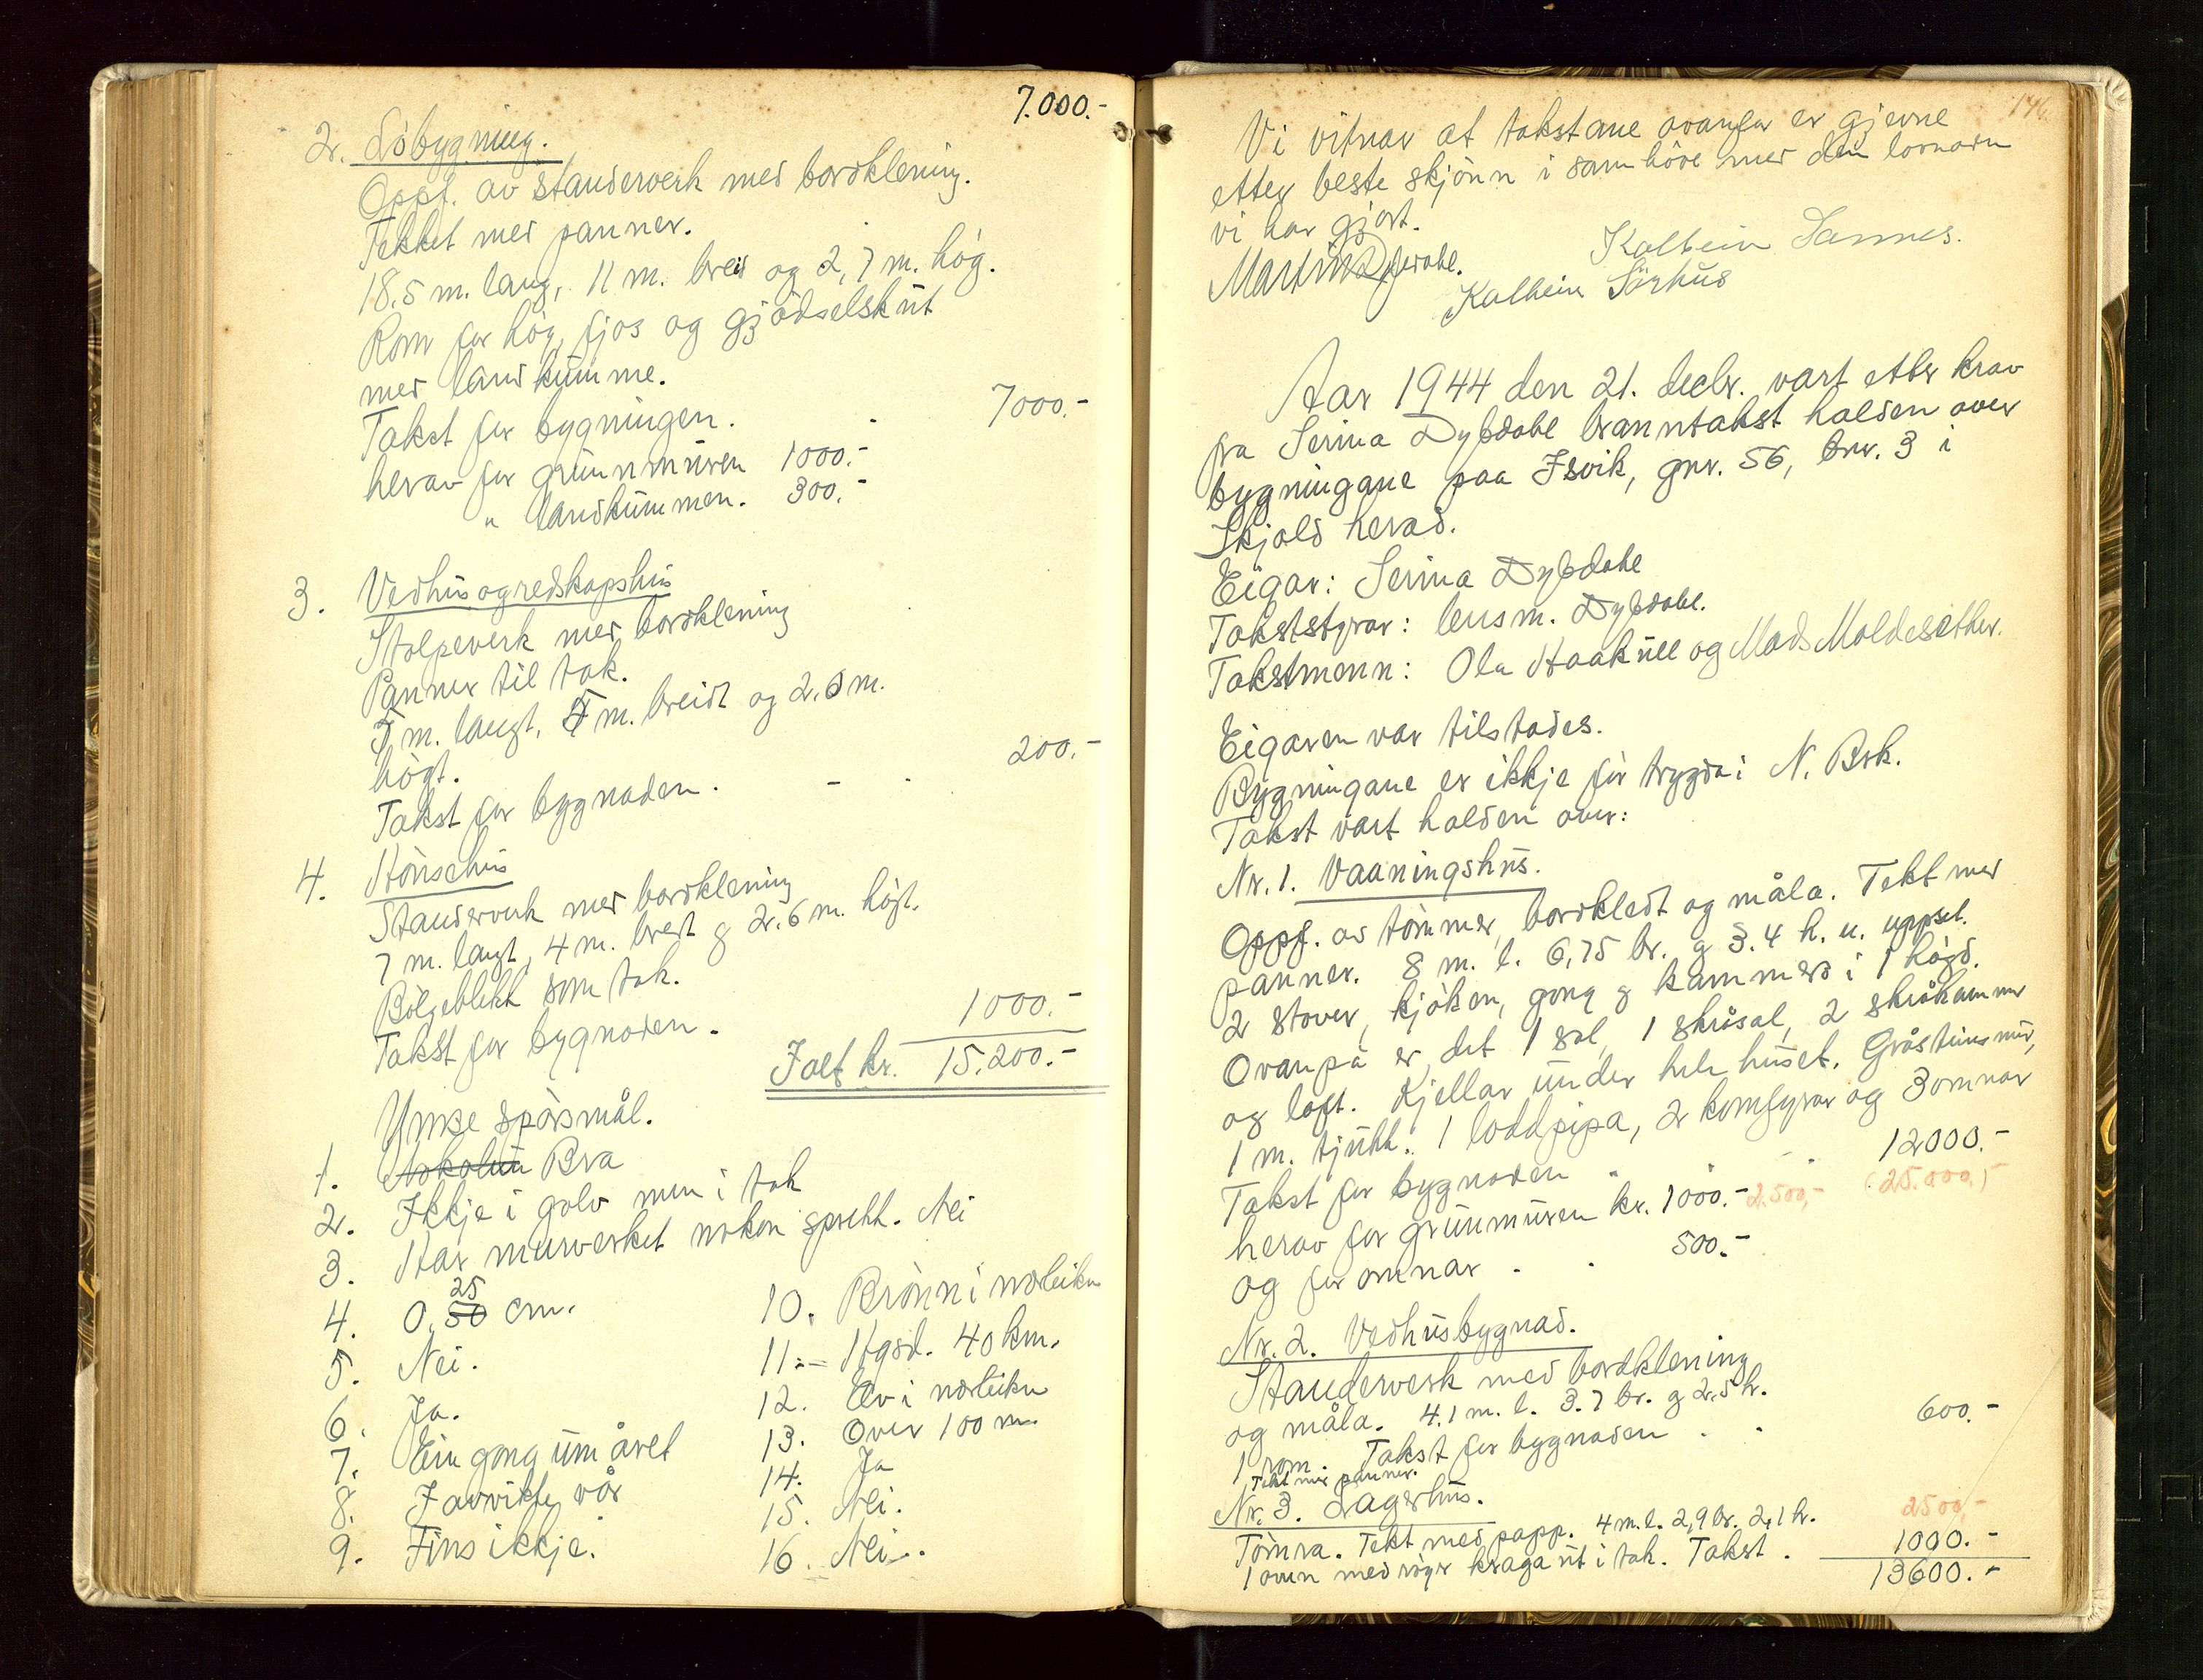 7.000.-
2. Löbygning.
Oppf. av standerverk med bordklening.
Tekket med panner.
18.5 m. lang, 11 m. breid og 2,7 m. høg.
Rom for høy, fjos og gjödselskut
med landkumme.
Takst for bygningen. 7000.-
herav for grunnmuren 1000.-
" landkummen. 300.-
3. Vedhus og redskapshus
Stolpeverk med bordklening
Panner til tak.
5 m. langt, 4 m. breidt og 2.5 m.
högt.
Takst for bygnaden. - 200.-
4. Hönsehus
Standerverk med bordklening
7 m. langt, 4 m. bredt g 2.6 m. högt.
Bölgeblekk som tak.
Takst for bygnaden. 1000.-
Ialt kr. 15.200.-
Ymse spörsmål.
1. Bra
2. Ikkje i golv men i tak
3. Har murverket nokon sprekk. Nei
4. 0,50 25 cm.
5. Nei.
6. Ja.
7. Ein gong um året
8. I avvikte vår
9. Fins ikkje.
10. Brönn i nærleiken
11. Hgsd. 40 km.
12. Elv i nærleiken
13. Over 100 m.
14. Ja
15. Nei.
16. Nei.
146
Vi vitnar at takstane ovanfor er gjevne
etter beste skjönn i samhöve med den lovnaden
vi har gjort.
Martin Dybdahl. Kolbein Sannes.
Kolbein Sörhus
Aar 1944 den 21. decbr. vart etter krav
fra Serina Dybdahl branntakst halden over
bygningane paa Isvik, gnr. 56, bnr. 3 i
Skjold herad.
Eigar: Serina Dybdahl
Takststyrar: lensm. Dybdahl.
Takstmenn: Ola Haakull og Mads Moldesæther.
Eigaren var tilstades.
Bygningane er ikkje för trygda i N. Brk.
Takst vart halden over:
Nr. 1. Vaaningshus.
Oppf. av tömmer, bordkledt og måla. Tekt med
panner. 8 m. l. 6,75 br. g 3.4 h. u. uppset.
2 stover, kjöken, gong g kammers i 1 högd.
Ovanpå er det 1 sal, 1 skråsal, 2 skråkammer
og loft. Kjellar under hele huset. Gråsteinsmur,
1 m. tjukk. 1 loddpipa, 2 komfyrar og 3 omnar
Takst for bygnaden 12000.-
herav for grunnmuren kr. 1000.- 2.500,- (25.000,)-
og for omnar 500.-
Nr. 2. Vedhusbygnad.
Standerverk med bordklening
og måla. 4.1 m. l. 3.7 br. g 2.5 h.
1 rom. Takst for bygnaden 600.-
Tekt med panner.
Nr. 3. Lagerhus.
Tömra. Tekt med papp. 4 m. l. 2,9 br. 2,1 h. 2500,-
1 omn med röyr kraga ut i tak. Takst. 1000.-
13600.-